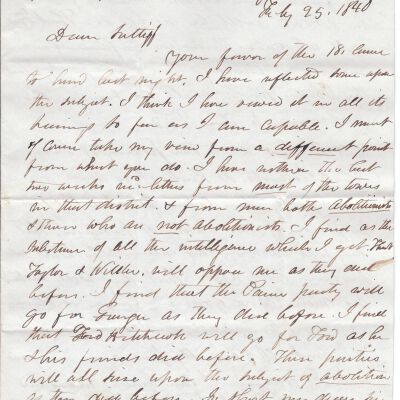 Feby 25. 1840
Dear Sutliff
Your favor of the 18th came
to hand last night. I have reflected some upon
the subject. I think I have viewed it in all its
bearings so far as I am capable. I must
of course take my view from a different point
from what you do. I have within the last
two weeks rec. letters from most of the towns
in that district. & from men both abolitionists
& those who are not abolitionists. I find as the
substance of all the intelligence which I get. that
Taylor & Wilder, will oppose me as they did
before. I find that the Paine party will
go for as they did before. I find
that Ford Hitchcock will go for Ford as he
& his friends did before. These parties
will all seize upon the subject of abolition
as they did before. In